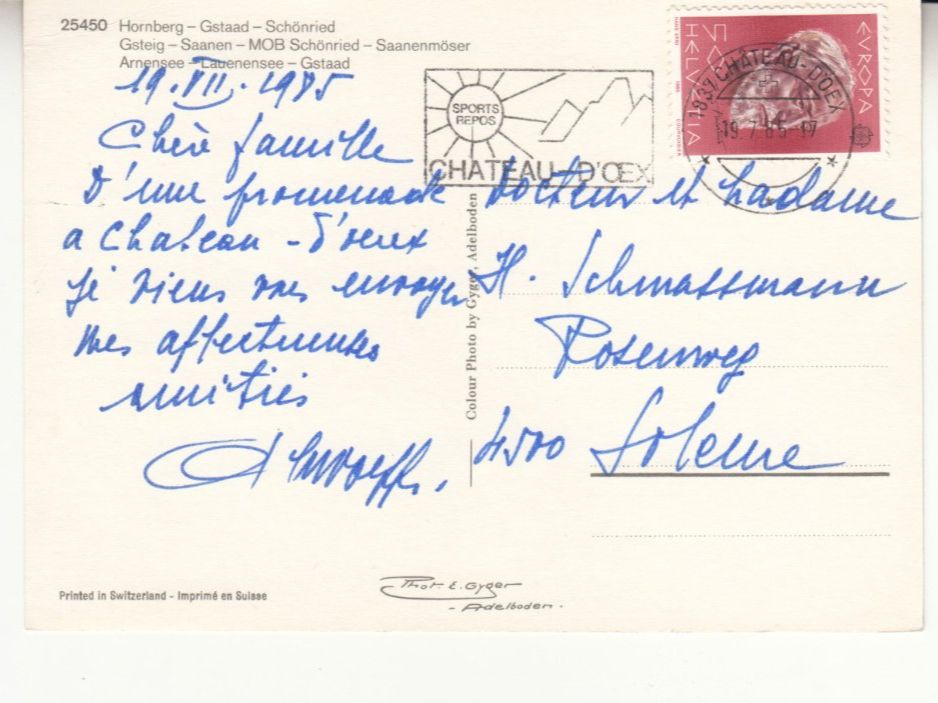 25450 Hornberg – Gstaad – Schönried
Gsteig – Saanen – MOB Schönried – Saanenmöser
Arnensee – Lauenensee – Gstaad
19. VII. 1985
Chère famille
D'une promenade
a Chateau - d'oeux
je viens vous envoyer
mes affectueuses
amitiés
SPORTS
REPOS
CHATEAU-D'ŒX
HELVETIA
50
EUROPA
1837 CHÂTEAU-D'OEX
19.7.85-17
Docteur et Madame
H. Schmassmann
Rosenweg
4500 Soleure
Colour Photo by Gyger, Adelboden
Printed in Switzerland - Imprimé en Suisse
Phot. E. Gyger
- Adelboden.